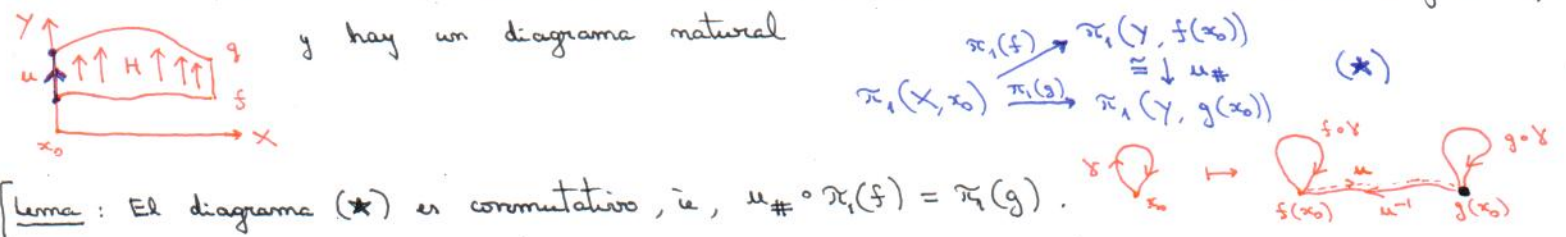 Y
u
H
g
f
x₀
X
y hay un diagrama natural
π₁(f)
π₁(Y, f(x₀))
≅ ↓ u_#
(★)
π₁(X, x₀) —π₁(g)→ π₁(Y, g(x₀))
Lema: El diagrama (★) es conmutativo, ie, u_# ∘ π₁(f) = π₁(g).
γ
x₀
↦
f∘γ
u
g∘γ
f(x₀)
u⁻¹
g(x₀)